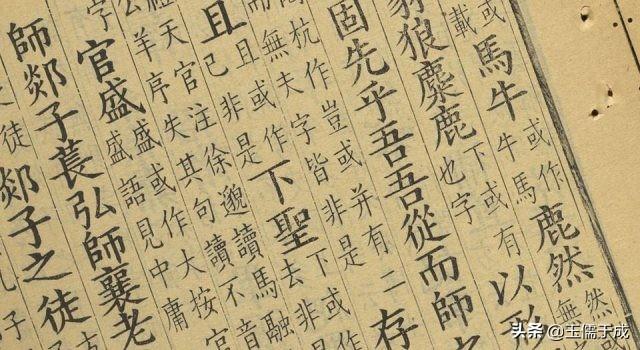 或
馬牛
或作
牛馬
鹿然
然
無
載
豺狼麋鹿
下或有
也字
以形
固先乎吾吾從而師
杭作豈或并有二
無夫字皆非是
存
且
且或作
己非是
下聖
下或
去非
天官注徐邈讀馬融音
公羊序失其句讀不
官盛
盛或作大按官
盛語見中庸
師郯子萇弘師襄老
之徒郯子之徒
子
头条 @玉儒于成